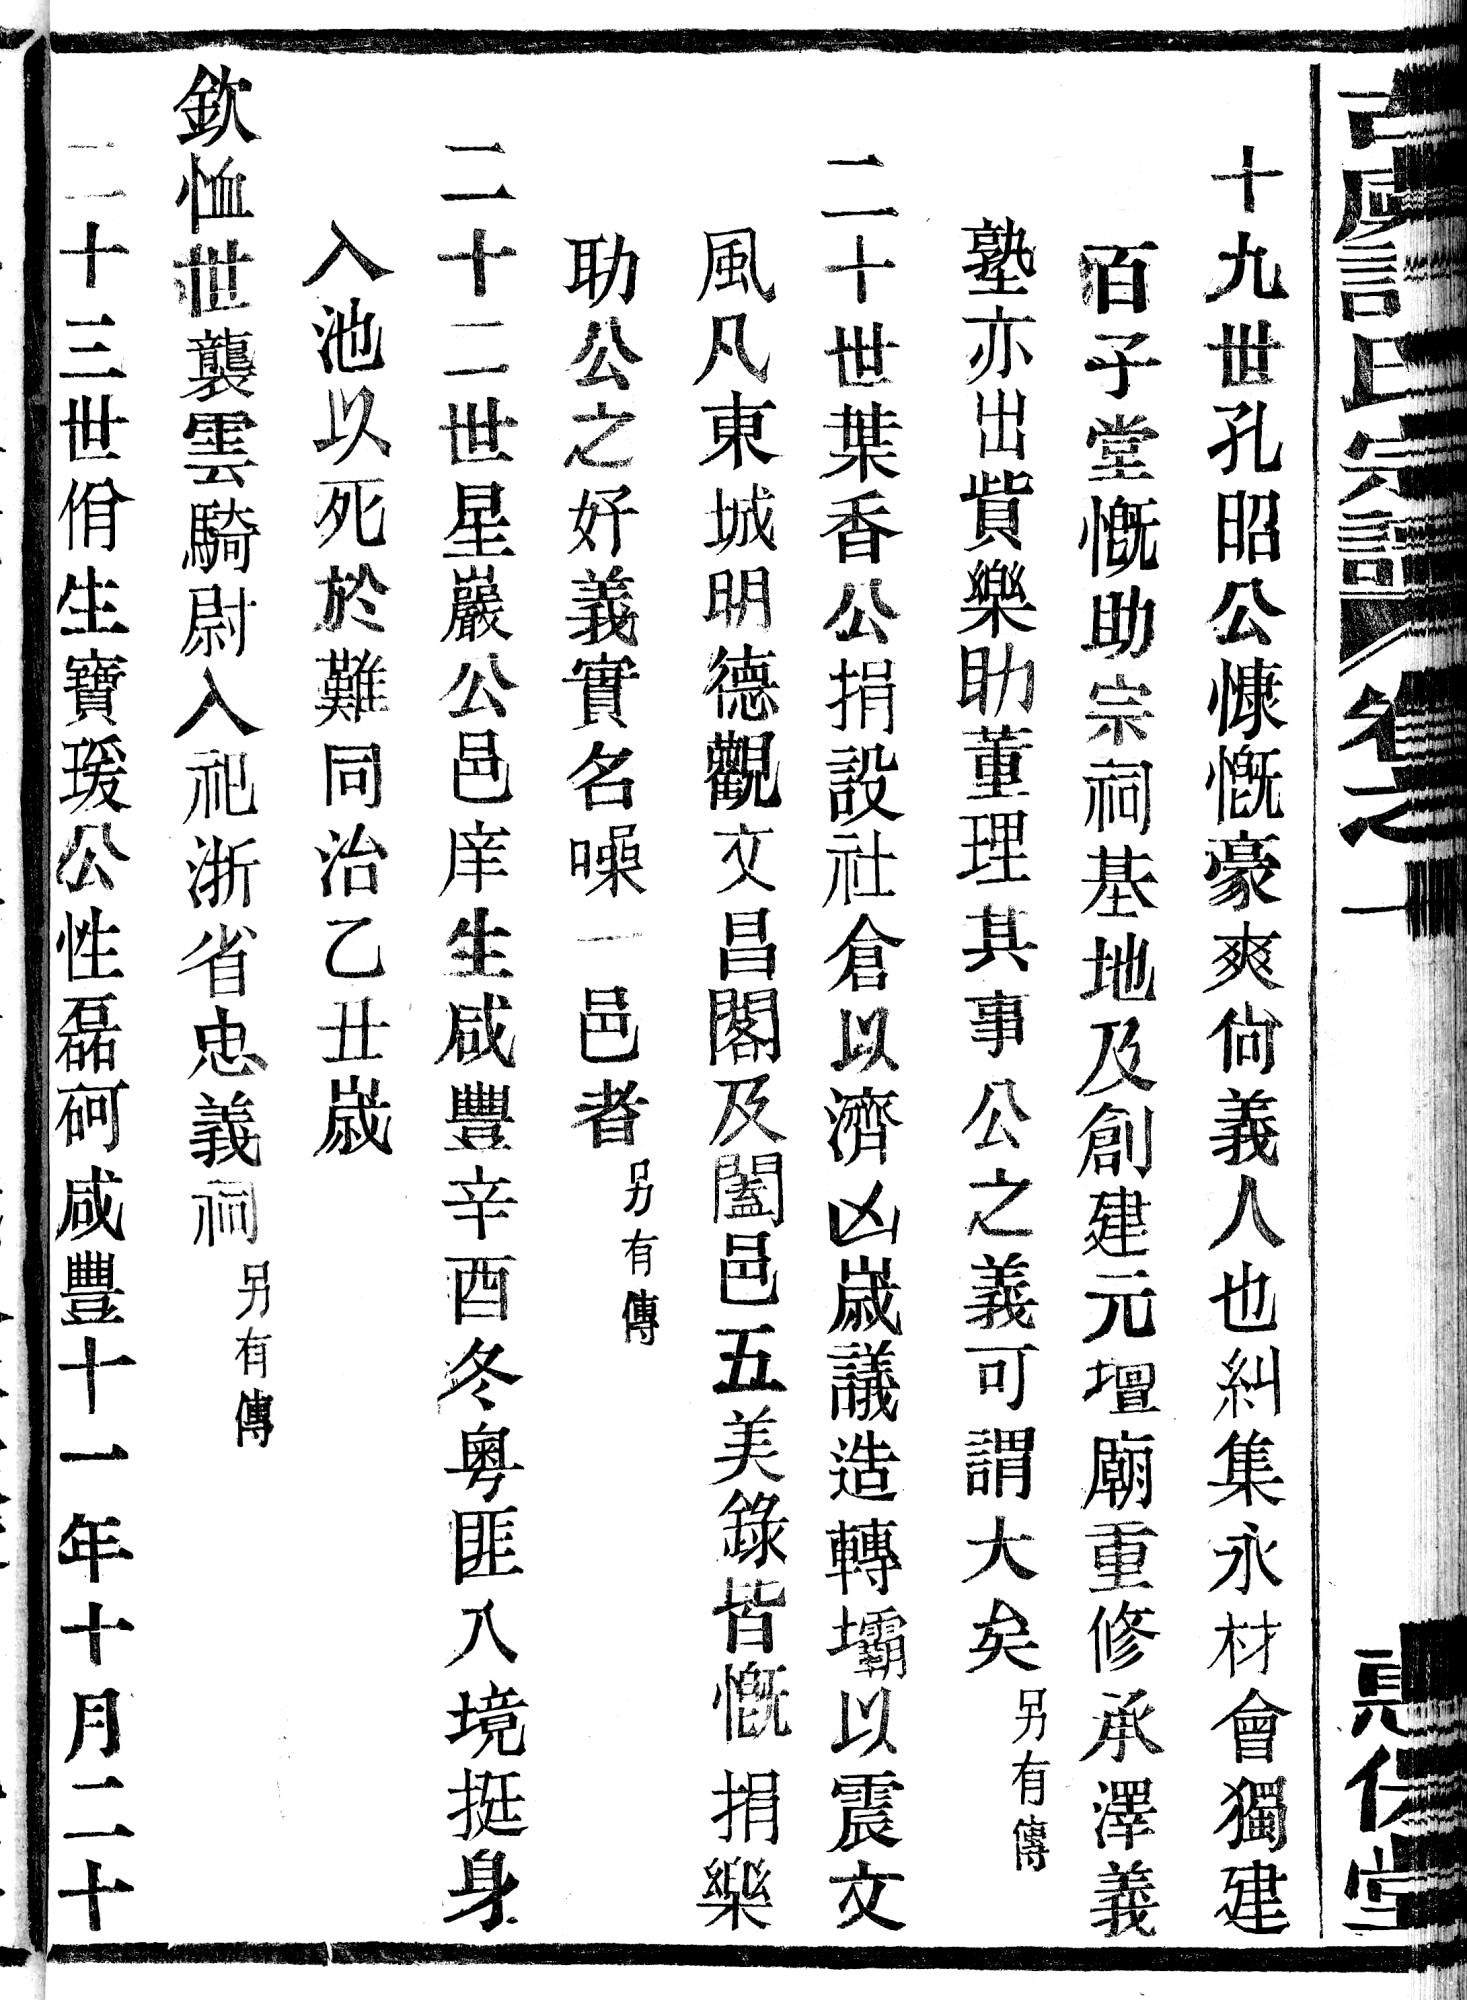 十九世孔昭公慷慨豪爽尙義人也糾集永材會獨建
百子堂慨助宗祠基地及創建元壇廟重修承澤義
塾亦出貲樂助董理其事公之義可謂大矣另有傳
二十世葉香公捐設社倉以濟凶歲議造轉壩以震文
風凡東城明德觀文昌閣及闔邑五美錄皆慨捐樂
助公之好義實名噪一邑者另有傳
二十二世星巖公邑庠生咸豐辛酉冬粵匪入境挺身
入池以死於難同治乙丑歲
欽恤世襲雲騎尉入祀浙省忠義祠另有傳
二十三世佾生寶瑗公性磊砢咸豐十一年十月二十